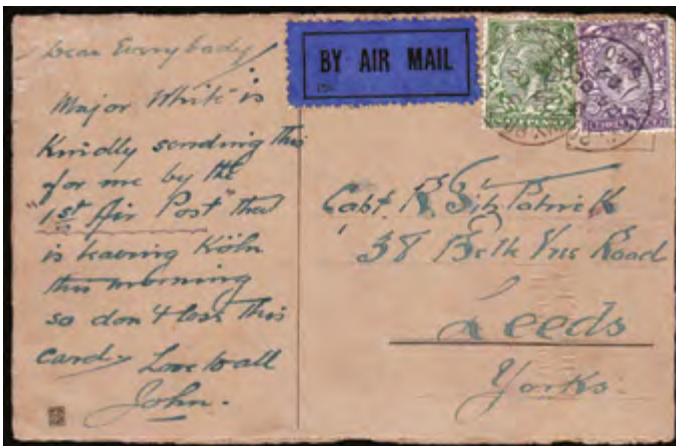 Dear Everybody
Major White is
Kindly sending this
for me by the
"1st Air Post" that
is leaving Köln
this morning
so don't loss this
card. Love to all
John.
BY AIR MAIL
Capt. R. Fitzpatrick
38 Road
Leeds
Yorks.